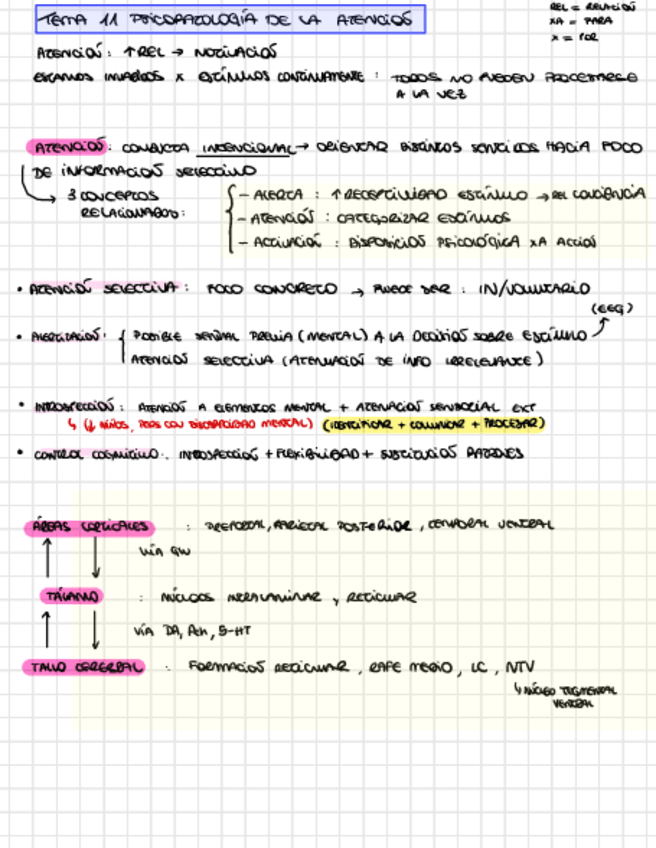 TEMA 11 PSICOPATOLOGÍA DE LA ATENCIÓN
REL = RELACIÓN
XA = PARA
X = POR
ATENCIÓN: ↑REL → MOTIVACIÓN
ESTAMOS INVADIDOS X ESTÍMULOS CONTINUAMENTE: TODOS NO PUEDEN PROCESARSE
A LA VEZ
ATENCIÓN: CONDUCTA INTENCIONAL → ORIENTAR DISTINTOS SENTIDOS HACIA FOCO
DE INFORMACIÓN SELECTIVO
→ 3 CONCEPTOS
RELACIONADOS:
- ALERTA: ↑ RECEPTIVIDAD ESTÍMULO → REL CONCIENCIA
- ATENCIÓN: CATEGORIZAR ESTÍMULOS
- ACTIVACIÓN: DISPOSICIÓN PSICOLÓGICA XA ACCIÓN
• ATENCIÓN SELECTIVA: FOCO CONCRETO → PUEDE SER: IN/VOLUNTARIO
(EEG)
• ALERTIZACIÓN: POSIBLE SEÑAL PREVIA (MENTAL) A LA DECISIÓN SOBRE ESTÍMULO
ATENCIÓN SELECTIVA (ATENUACIÓN DE INFO IRRELEVANTE)
• INTROSPECCIÓN: ATENCIÓN A ELEMENTOS MENTAL + ATENACIÓN SENSORIAL EXT
↳ (↓ NIÑOS, PERS CON DISCAPACIDAD MENTAL) (IDENTIFICAR + COMUNICAR + PROCESAR)
• CONTROL COGNITIVO: INTROSPECCIÓN + FLEXIBILIDAD + SUSTITUCIÓN PATRONES
ÁREAS CORTICALES: PREFRONTAL, PARIETAL POSTERIOR, TEMPORAL VENTRAL
↑ ↓ VÍA GLU
TÁLAMO: NÚCLEOS INTRALAMINAR Y RETICULAR
↑ ↓ VÍA DA, Ach, 5-HT
TALLO CEREBRAL: FORMACIÓN RETICULAR, RAFE MEDIO, LC, NTV
↳ NÚCLEO TEGMENTAL
VENTRAL